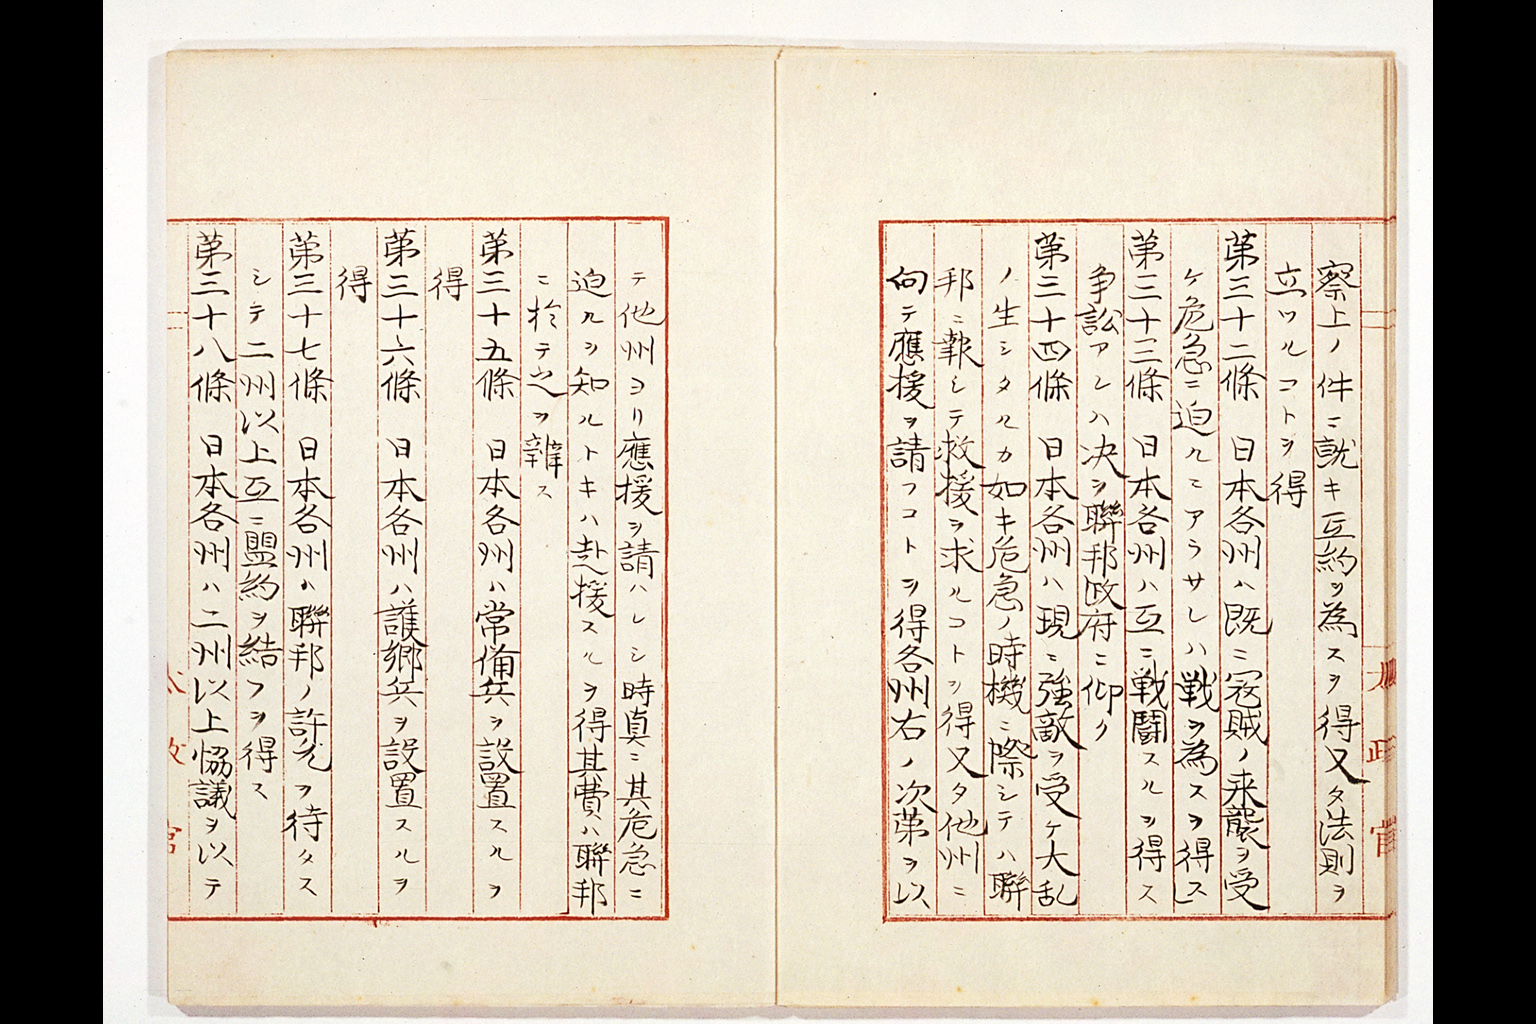 察上ノ件ニ就キ互約ヲ為スヲ得又タ法則ヲ
立ツルコトヲ得
第三十二條　日本各州ハ既ニ寇賊ノ来襲ヲ受
ケ危急ニ迫ルニアラサレハ戦ヲ為スヲ得ス
第三十三條　日本各州ハ互ニ戦闘スルヲ得ス
争訟アレハ决ヲ聯邦政府ニ仰ク
第三十四條　日本各州ハ現ニ強敵ヲ受ケ大乱
ノ生シタルカ如キ危急ノ時機ニ際シテハ聯
邦ニ報シテ救援ヲ求ルコトヲ得又タ他州ニ
向テ應援ヲ請フコトヲ得各州右ノ次第ヲ以
テ他州ヨリ應援ヲ請ハレシ時真ニ其危急ニ
迫ルヲ知ルトキハ赴援スルヲ得其費ハ聯邦
ニ於テ之ヲ辨ス
第三十五條　日本各州ハ常備兵ヲ設置スルヲ
得
第三十六條　日本各州ハ護郷兵ヲ設置スルヲ
得
第三十七條　日本各州ハ聯邦ノ許允ヲ待タス
シテ二州以上互ニ盟約ヲ結フヲ得ス
第三十八條　日本各州ハ二州以上恊議ヲ以テ